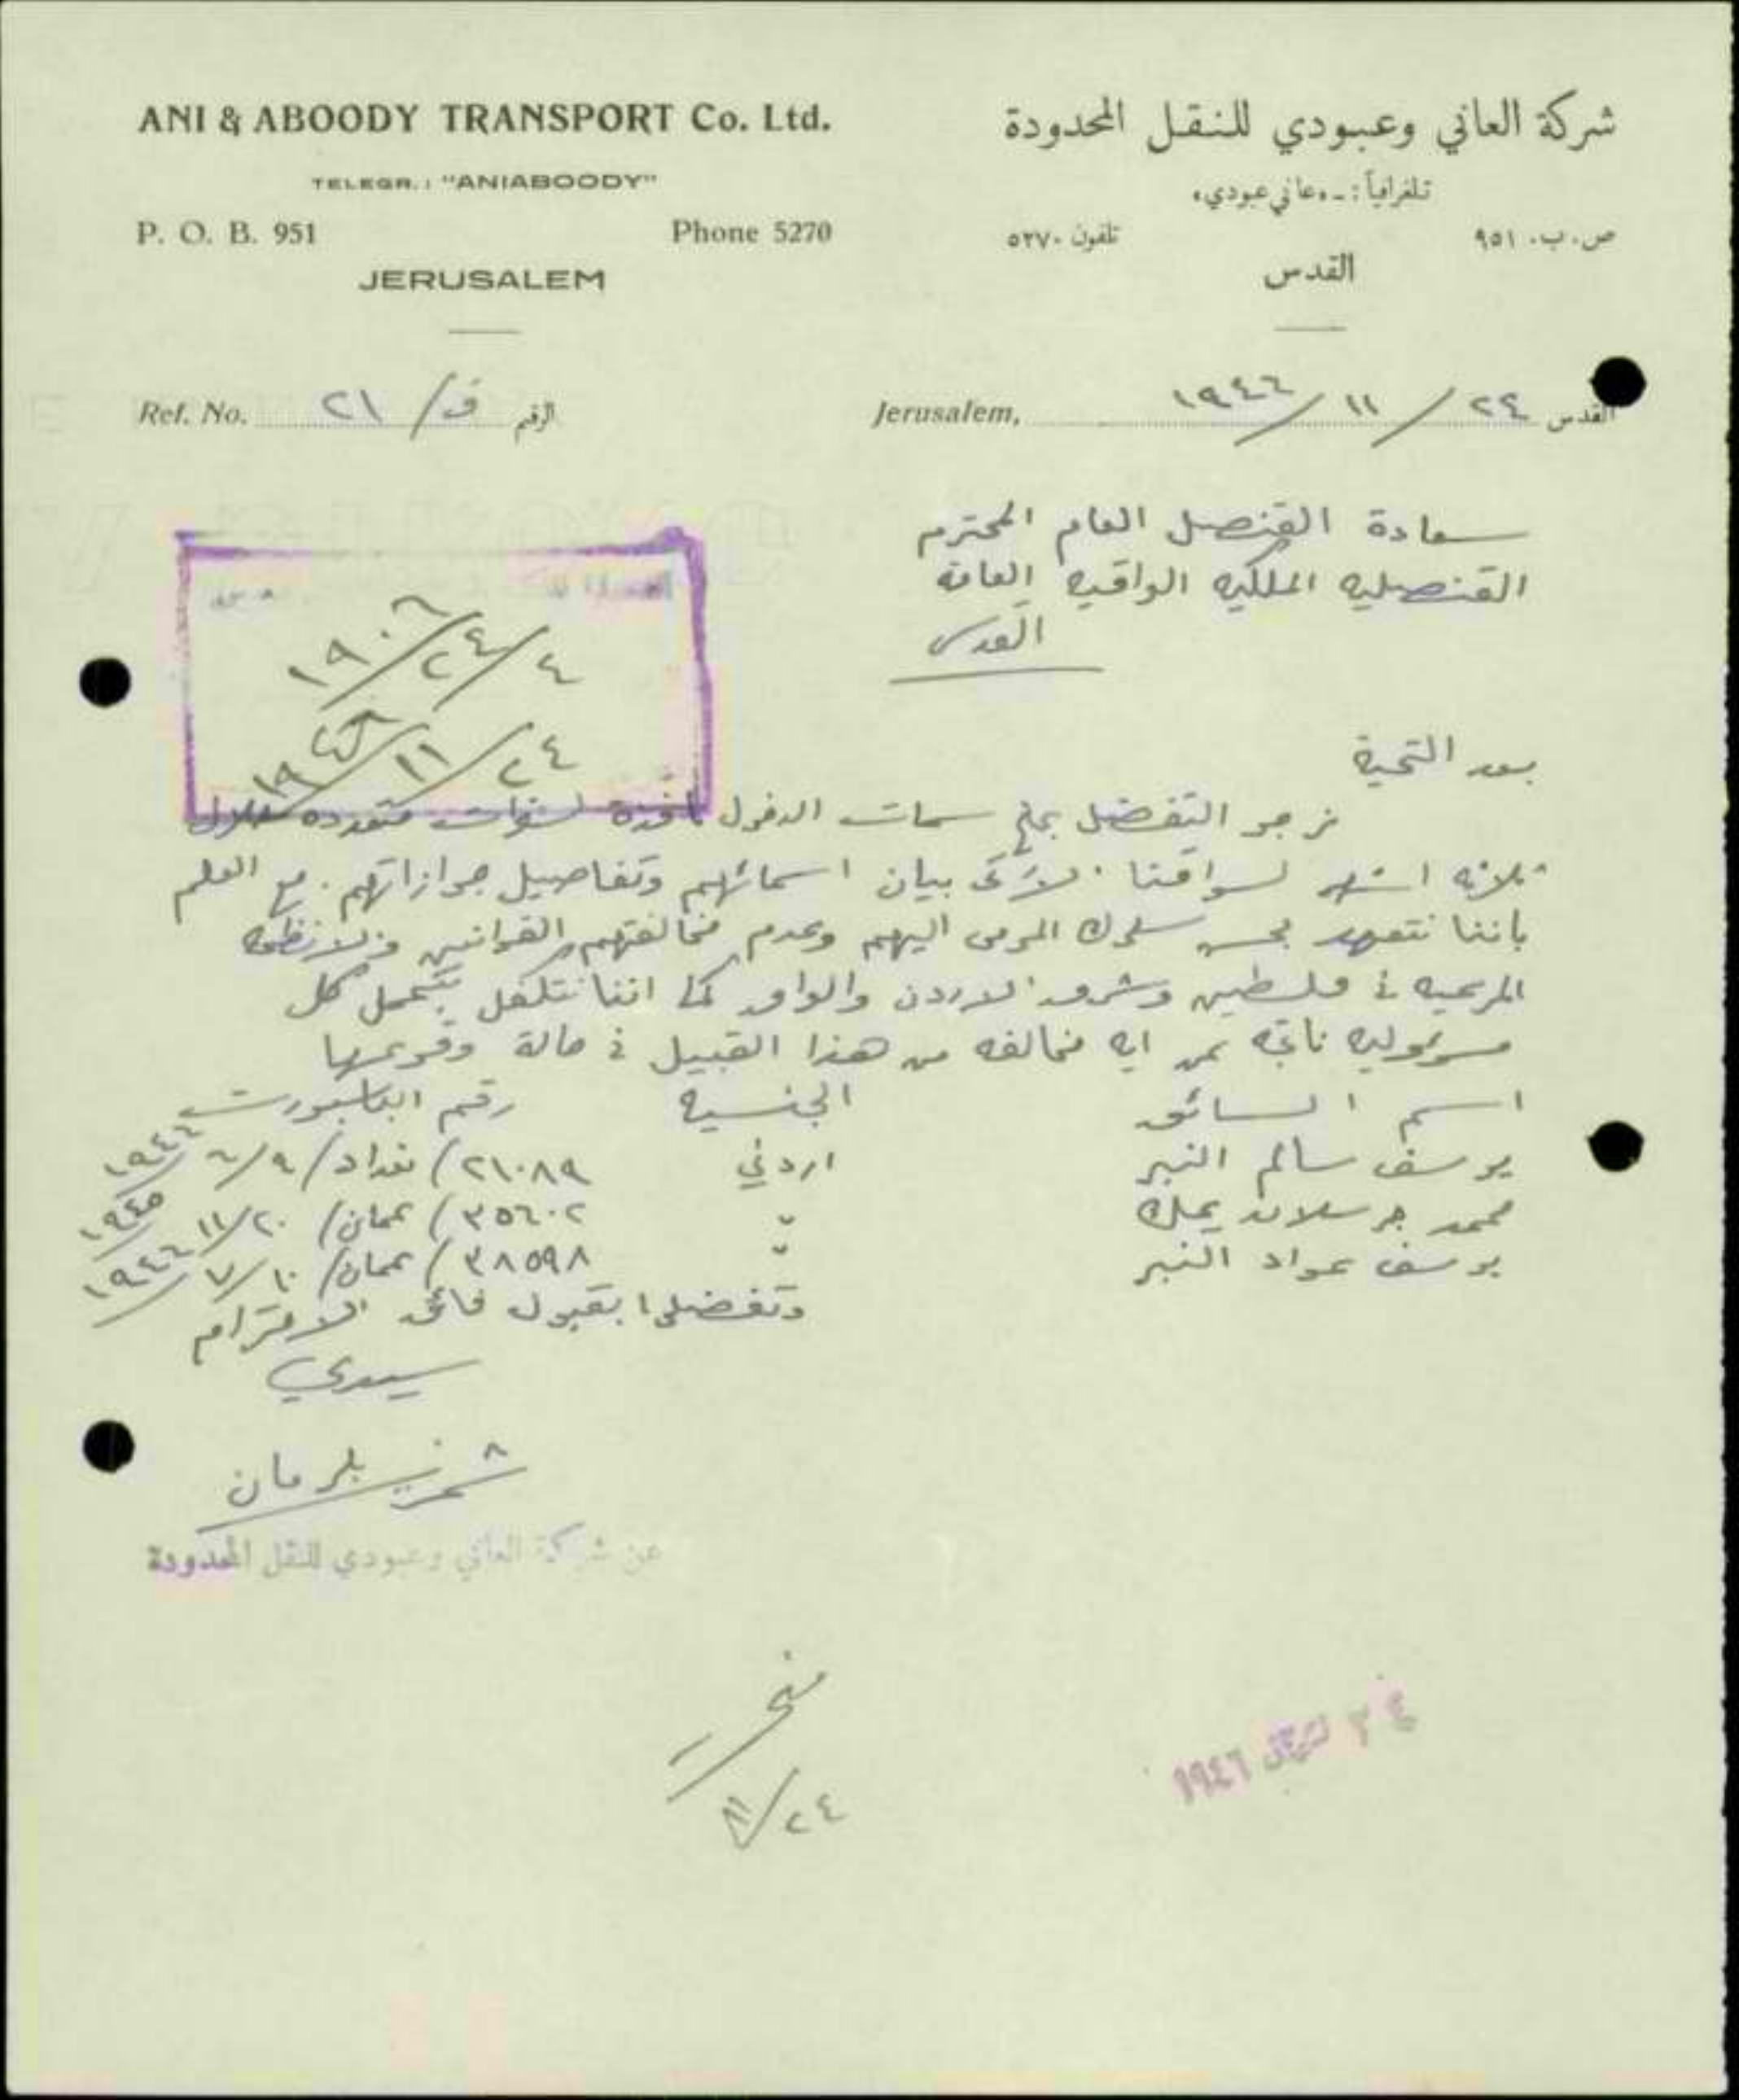 ANI & ABOODY TRANSPORT Co. Ltd.
TELEGR.: "ANIABOODY"
P. O. B. 951 Phone 5270
JERUSALEM
شركة العاني وعبودي للنقل المحدودة
تلغرافياً: ـ «عاني عبودي»
ص. ب. ٩٥١ تلفون ٥٢٧٠
القدس
Ref. No. ق/٢١ الرقم
Jerusalem, ٢٤/١١/١٩٤٦ القدس
سعادة القنصل العام المحترم
القنصليه الملكيه العراقيه العامه
القدس
١٩٠٦/٢٤/٤
٢٤/١١/١٩٤٦
بعد التحية
نرجو التفضل بمنح سمات الدخول نافذة لسفرات متعدده خلال
ثلاثه اشهر لسواقنا الآتى بيان اسمائهم وتفاصيل جوازاتهم. مع العلم
باننا نتعهد بحسن سلوك المومى اليهم وعدم مخالفتهم القوانين والانظمه
المرعيه في فلسطين وشرق الاردن والعراق كما اننا نتكفل بتحمل كل
مسؤوليه ناتجه عن ايه مخالفه من هذا القبيل في حالة وقوعها
اسم السائق الجنسيه رقم الباسبورت
يوسف سالم النبر اردني ٢١٠٨٩/ بغداد/ ٦/٩/١٩٤٦
محمد يملك " ٣٥٦٠٢/ عمان/ ١١/٢٠/١٩٤٥
يوسف عواد النبر " ٣٨٥٩٨/ عمان/ ٧/١٠/١٩٤٦
وتفضلوا بقبول فائق الاحترام
سيدي
عن شركة العاني وعبودي للنقل المحدودة
٢٤/١١
٢٤ ١٩٤٦